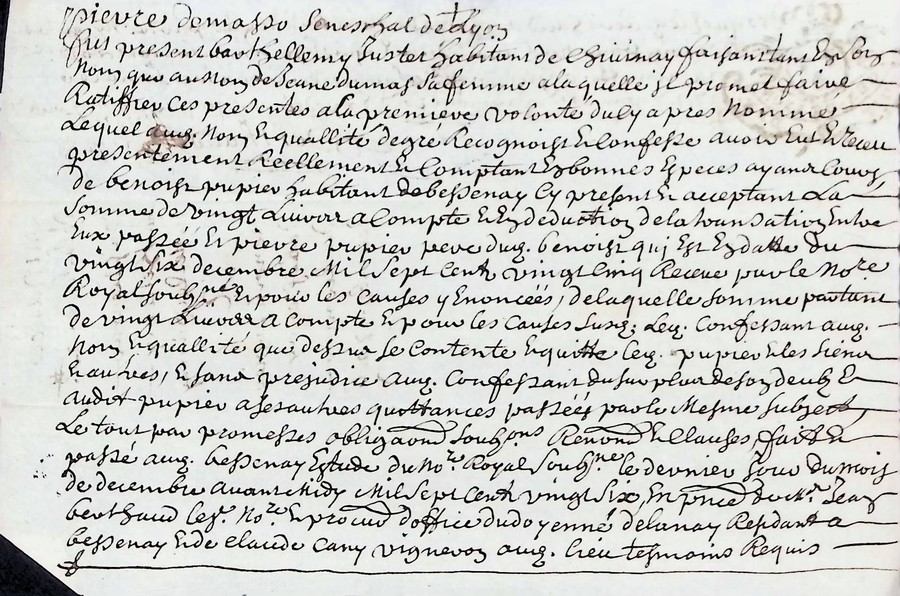 pierre demasso seneschal de Lyon
fut present barthellemy Juster habitant de Chivrnay faisant tant En son
Nom que au nom de Jeane dumas sa femme a laquelle Jl promet faire
Ratiffier Ces presentes a la premiere volonté duly apres Nommé
Lequel aug. Nom Et quallité de gré Recognoist Et Confesse avoir Eut Et Receu
presentement Reellement Et Comptant En bonnes Especes ayana Cours
de benoist pupier habitant de bessenay Cy present Et acceptant La
somme de vingt Livres a Compte Et En deduction de la transation Entre
Eux passée Et pierre pupier pere dug. benoist qui Est En datte du
vingt six decembre Mil Sept Cent vingt Cinq Receue par le Nore
Royal soubsne Et pour les Causes y Enoncées, de laquelle somme partant
de vingt Livres a Compte Et pour les Causes susg; Leg. Confessant aug.
Nom Et quallité que dessus se Contente Et quitte leg. pupier Et les siens
Et autres, Et sans prejudice aug. Confessant du surplus de son deub Et
audit pupier a ses autres quittances passées par le Mesme subject,
Le tout par promesses obligaons soubons Renons Et Clauses, fait Et
passé aug. bessenay Estude du Nore Royal soubne le dernier Jour du mois
de decembre avant Midy Mil Sept Cent vingt six, En pnce de Mr Jean
berthaud lesr Nore Et procur d'office du doyenné de lanay Residant a
bessenay Et de Claude Cany vigneron aug. lieu tesmoins Requis